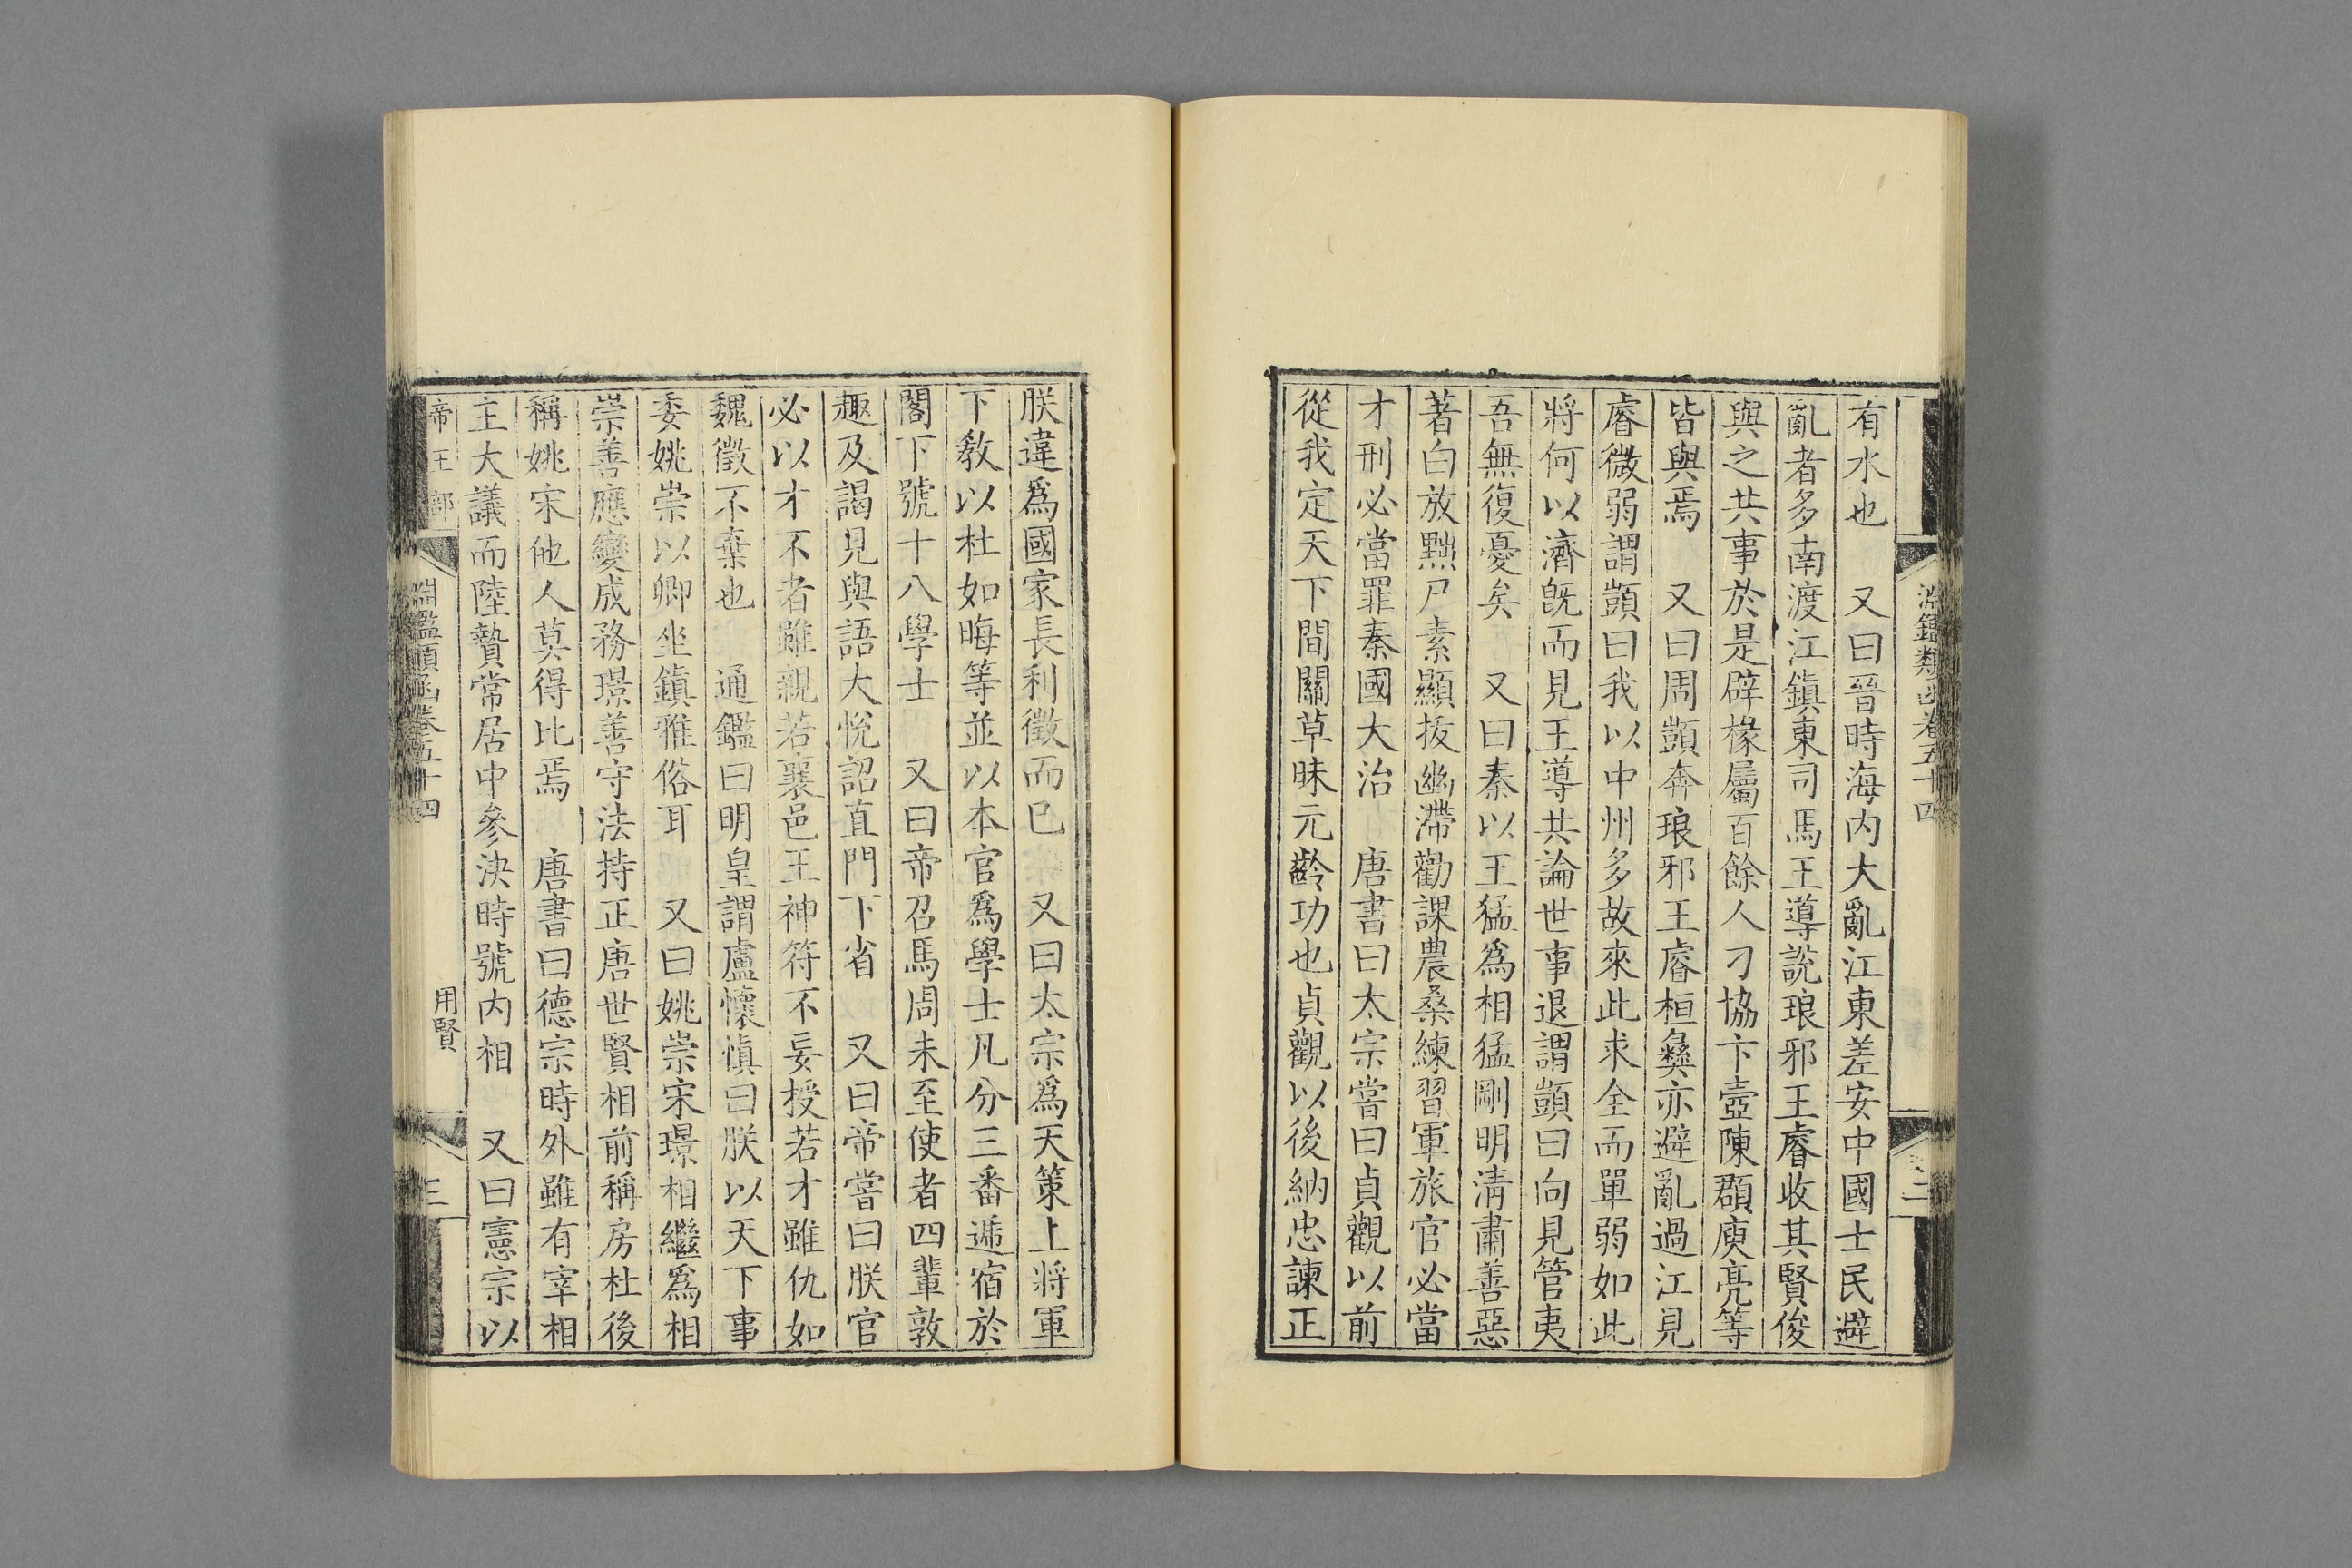 淵鑑類函卷五十四
二
有水也　又曰晉時海内大亂江東差安中國士民避
亂者多南渡江鎮東司馬王導說琅邪王睿收其賢俊
與之共事於是辟掾屬百餘人刁協卞壼陳頵庾亮等
皆與焉　又曰周顗奔琅邪王睿桓彝亦避亂過江見
睿微弱謂顗曰我以中州多故來此求全而單弱如此
將何以濟旣而見王導共論世事退謂顗曰向見管夷
吾無復憂矣　又曰秦以王猛爲相猛剛明淸肅善惡
著白放黜尸素顯拔幽滯勸課農桑練習軍旅官必當
才刑必當罪秦國大治　唐書曰太宗嘗曰貞觀以前
從我定天下間關草昧元齡功也貞觀以後納忠諫正
朕違爲國家長利徵而已　又曰太宗爲天策上將軍
下教以杜如晦等並以本官爲學士凡分三番遞宿於
閣下號十八學士　又曰帝召馬周未至使者四輩敦
趣及謁見與語大悅詔直門下省　又曰帝嘗曰朕官
必以才不者雖親若襄邑王神符不妄授若才雖仇如
魏徵不棄也　通鑑曰明皇謂盧懷愼曰朕以天下事
委姚崇以卿坐鎮雅俗耳　又曰姚崇宋璟相繼爲相
崇善應變成務璟善守法持正唐世賢相前稱房杜後
稱姚宋他人莫得比焉　唐書曰德宗時外雖有宰相
主大議而陸贄常居中參決時號内相　又曰憲宗以
帝王部
淵鑑類函卷五十四
用賢
三